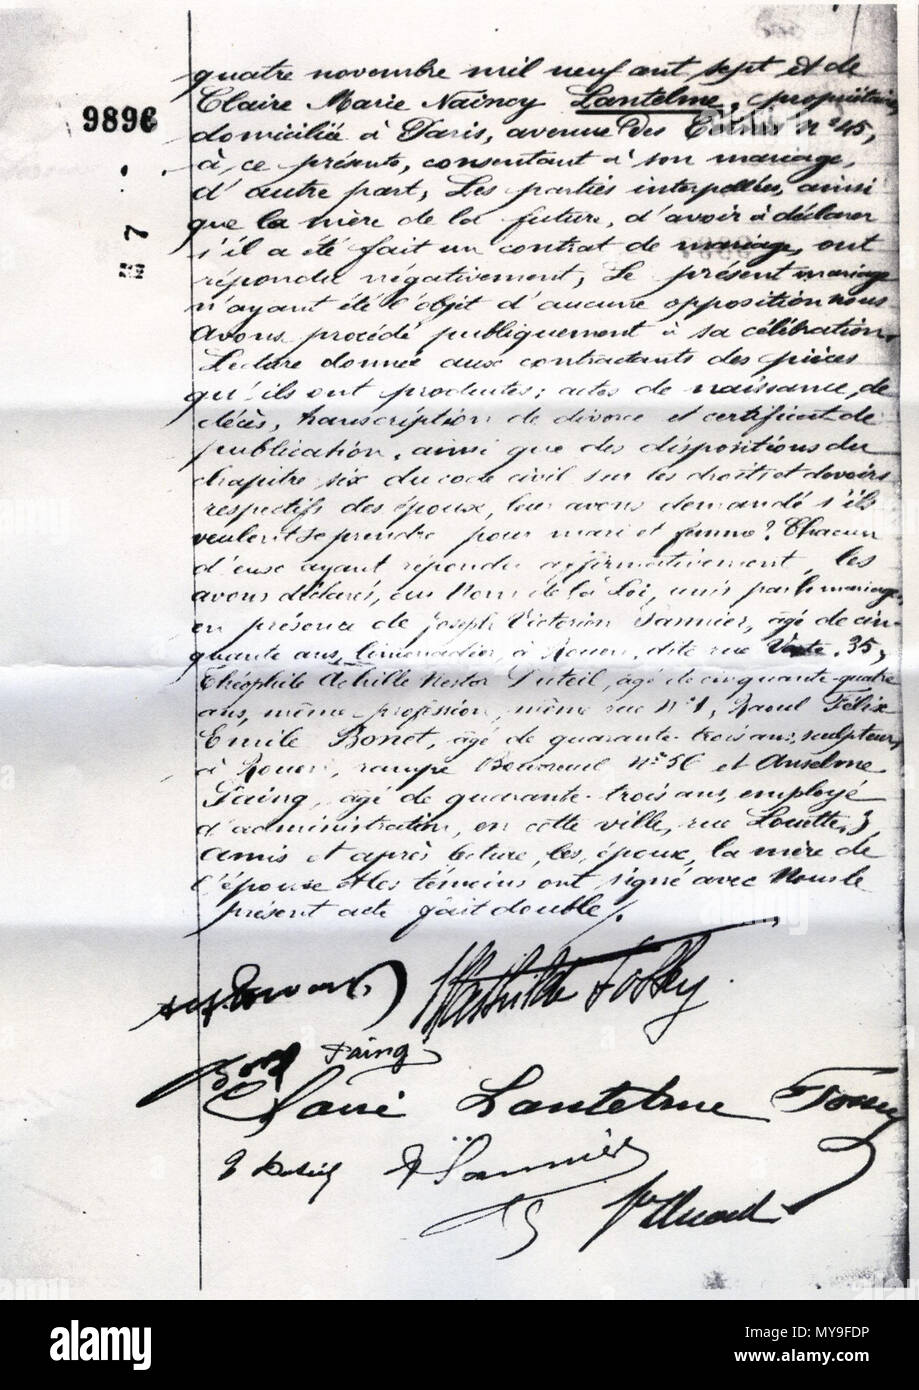 quatre novembre mil neuf cent sept et de
Claire Marie Naincy Lantelme, propriétaire
9896
domiciliée à Paris, avenue des n° 45,
à ce présente, consentant à son mariage,
d'autre part, Les parties interpellées, ainsi
que la mère de la future, d'avoir à déclarer
7
s'il a été fait un contrat de mariage, ont
répondu négativement, Le présent mariage
n'ayant été l'objet d'aucune opposition nous
avons procédé publiquement à sa célébration.
Lecture donnée aux contractants des pièces
qu'ils ont produites; actes de naissance, de
décès, transcription de divorce et certificat de
publication, ainsi que des dispositions du
chapitre six du code civil sur les droits et devoirs
respectifs des époux, leur avons demandé s'ils
veulent se prendre pour mari et femme? Chacun
d'eux ayant répondu affirmativement, les
avons déclarés, au Nom de la Loi, unis par le mariage,
en présence de Joseph Victorien Sannier, âgé de cin-
quante ans, limonadier, à Rouen, dite rue Verte, 35,
Théophile Achille Nestor Duteil, âgé de cinquante-quatre
ans, même profession, même rue N° 1, Raoul Félix
Emile Bonet, âgé de quarante-trois ans, sculpteur,
à Rouen, rampe Bouvreuil N° 56 et Anselme
Faing, âgé de quarante-trois ans, employé
d'administration, en cette ville, rue Louette, 3,
amis et après lecture, les époux, la mère de
l'épouse et les témoins ont signé avec Nous le
présent acte fait double.
Mathilde Fossey
Faing
Claire Lantelme Fossey
Sannier
alamy
Image ID: MY9FDP
www.alamy.com